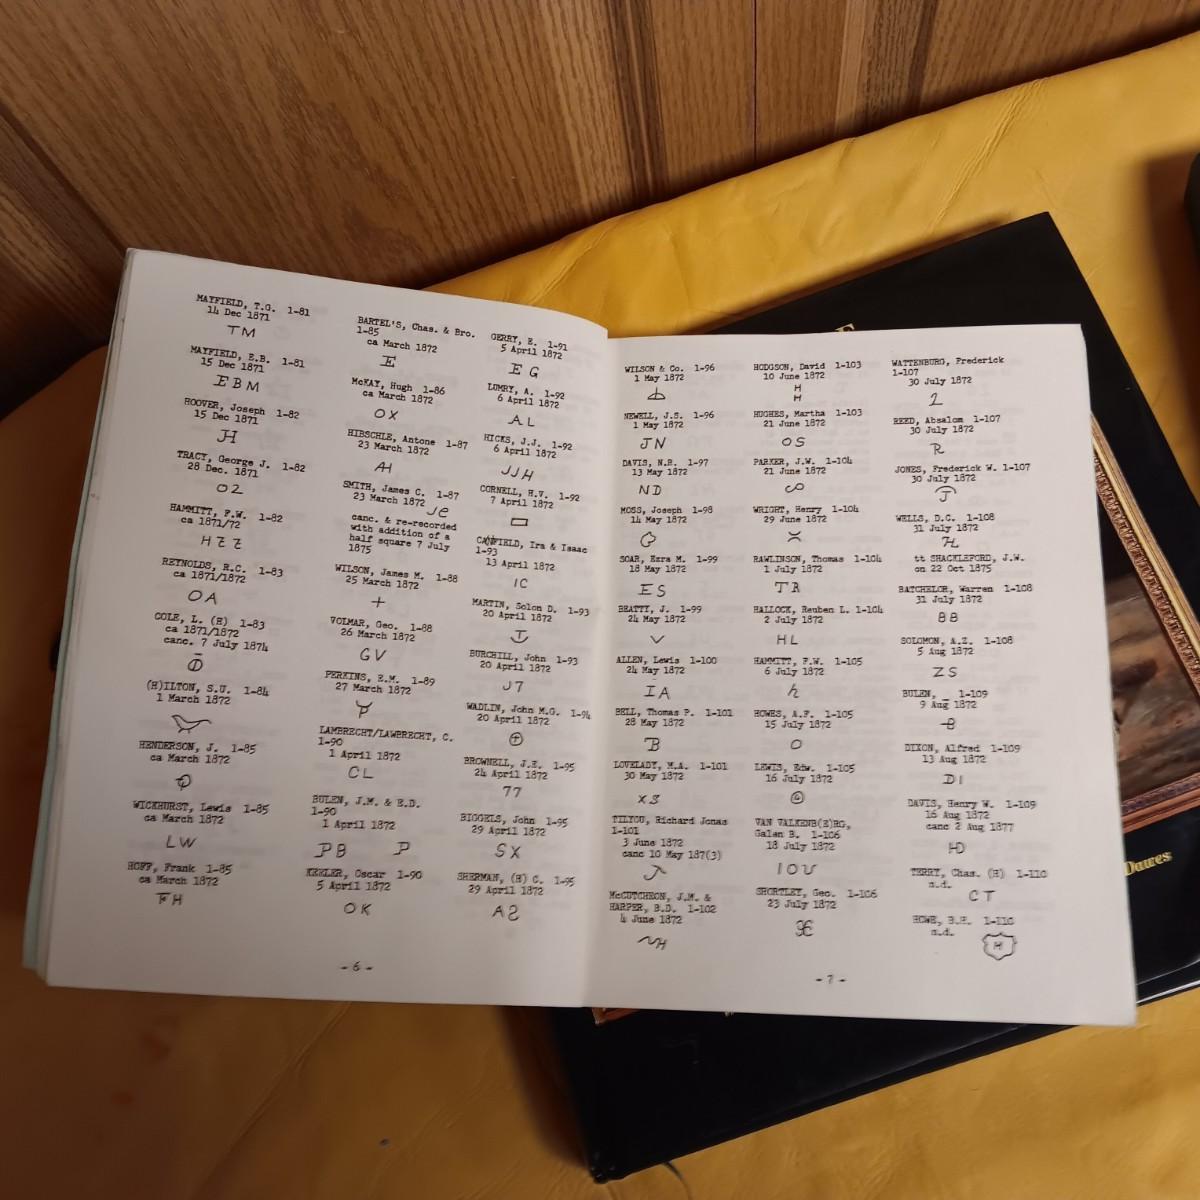 MAYFIELD, T.G. 1-81
14 Dec 1871
TM
MAYFIELD, E.B. 1-81
15 Dec 1871
EBM
HOOVER, Joseph 1-82
15 Dec 1871
JH
TRACY, George J. 1-82
28 Dec. 1871
OZ
HAMMITT, F.W. 1-82
ca 1871/72
HZZ
REYNOLDS, R.C. 1-83
ca 1871/1872
OA
COLE, L. (H) 1-83
ca 1871/1872
canc. 7 July 1874
(H)ILTON, S.U. 1-84
1 March 1872
HENDERSON, J. 1-85
ca March 1872
WICKHURST, Lewis 1-85
ca March 1872
LW
HOFF, Frank 1-85
ca March 1872
FH
BARTEL'S, Chas. & Bro.
1-85
ca March 1872
E
McKAY, Hugh 1-86
ca March 1872
OX
HIBSCHLE, Antone 1-87
23 March 1872
AH
SMITH, James C. 1-87
23 March 1872
JC
canc. & re-recorded
with addition of a
half square 7 July
1875
WILSON, James M. 1-88
25 March 1872
+
VOLMAR, Geo. 1-88
26 March 1872
GV
PERKINS, E.M. 1-89
27 March 1872
LAMBRECHT/LAWBRECHT, C.
1-90
1 April 1872
CL
BULEN, J.M. & E.D.
1-90
1 April 1872
PB P
KEELER, Oscar 1-90
5 April 1872
OK
GERRY, E. 1-91
5 April 1872
EG
LUMRY, A. 1-92
6 April 1872
AL
HICKS, J.J. 1-92
6 April 1872
JJH
CORNELL, H.V. 1-92
7 April 1872
CANFIELD, Ira & Isaac
1-93
13 April 1872
IC
MARTIN, Solon D. 1-93
20 April 1872
BURCHILL, John 1-93
20 April 1872
J7
WADLIN, John M.G. 1-94
20 April 1872
BROWNELL, J.E. 1-95
24 April 1872
77
BIGGELS, John 1-95
29 April 1872
SX
SHERMAN, (H) C. 1-95
29 April 1872
- 6 -
WILSON & Co. 1-96
1 May 1872
NEWELL, J.S. 1-96
1 May 1872
JN
DAVIS, N.R. 1-97
13 May 1872
ND
MOSS, Joseph 1-98
14 May 1872
SOAR, Ezra M. 1-99
18 May 1872
ES
BEATTY, J. 1-99
24 May 1872
V
ALLEN, Lewis 1-100
24 May 1872
IA
BELL, Thomas P. 1-101
28 May 1872
B
LOVELADY, M.A. 1-101
30 May 1872
XS
TILYOU, Richard Jonas
1-101
3 June 1872
canc 10 May 187(3)
McCUTCHEON, J.M. &
HARPER, B.D. 1-102
4 June 1872
HODGSON, David 1-103
10 June 1872
H
H
HUGHES, Martha 1-103
21 June 1872
OS
PARKER, J.W. 1-104
21 June 1872
WRIGHT, Henry 1-104
29 June 1872
RAWLINSON, Thomas 1-104
1 July 1872
TR
HALLOCK, Reuben L. 1-104
2 July 1872
HL
HAMMITT, F.W. 1-105
6 July 1872
h
HOWES, A.F. 1-105
15 July 1872
O
LEWIS, Edw. 1-105
16 July 1872
VAN VALKENB(E)RG,
Galen B. 1-106
18 July 1872
IOU
SHORTLEY, Geo. 1-106
23 July 1872
- 7 -
WATTENBURG, Frederick
1-107
30 July 1872
2
REED, Absalom 1-107
30 July 1872
R
JONES, Frederick W. 1-107
30 July 1872
J
WELLS, D.C. 1-108
31 July 1872
tt SHACKLEFORD, J.W.
on 22 Oct 1875
BATCHELOR, Warren 1-108
31 July 1872
BB
SOLOMON, A.Z. 1-108
5 Aug 1872
ZS
BULEN, _ 1-109
9 Aug 1872
B
DIXON, Alfred 1-109
13 Aug 1872
DI
DAVIS, Henry W. 1-109
16 Aug 1872
canc 2 Aug 1877
HD
TERRY, Chas. (H) 1-110
n.d.
CT
HOWE, B.H. 1-110
n.d.
H
Dawes